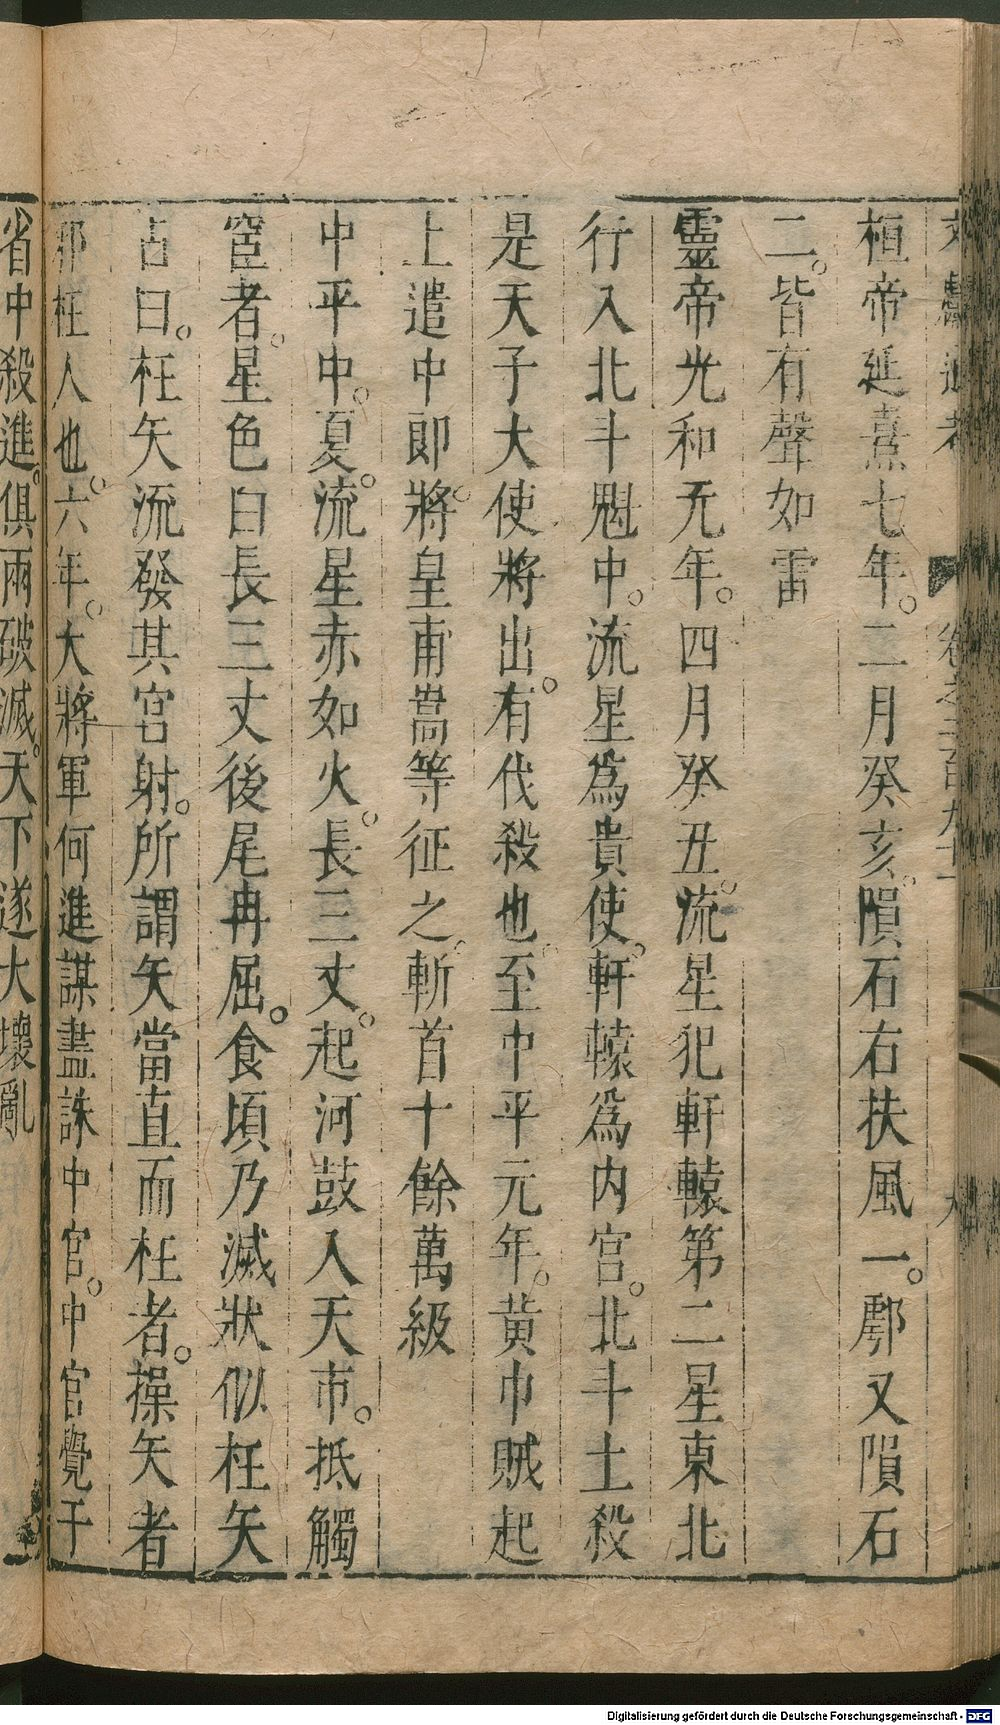 文獻通考 卷之二百九十一 九
桓帝延熹七年。二月癸亥。隕石右扶風一。鄠又隕石
二。皆有聲如雷
靈帝光和元年。四月癸丑。流星犯軒轅第二星東北
行入北斗魁中。流星爲貴使。軒轅爲内宫。北斗主殺
是天子大使將出。有伐殺也。至中平元年。黄巾賊起
上遣中郎將。皇甫嵩等征之。斬首十餘萬級
中平中。夏。流星赤如火。長三丈。起河鼓入天市。抵觸
宦者。星色白長三丈後尾再屈。食頃乃滅狀似枉矢
占曰。枉矢流發其宫射。所謂矢當直而枉者。操矢者
邪枉人也。六年。大將軍何進謀盡誅中官。中官覺于
省中殺進。俱兩破滅。天下遂大壞亂
Digitalisierung gefördert durch die Deutsche Forschungsgemeinschaft - DFG